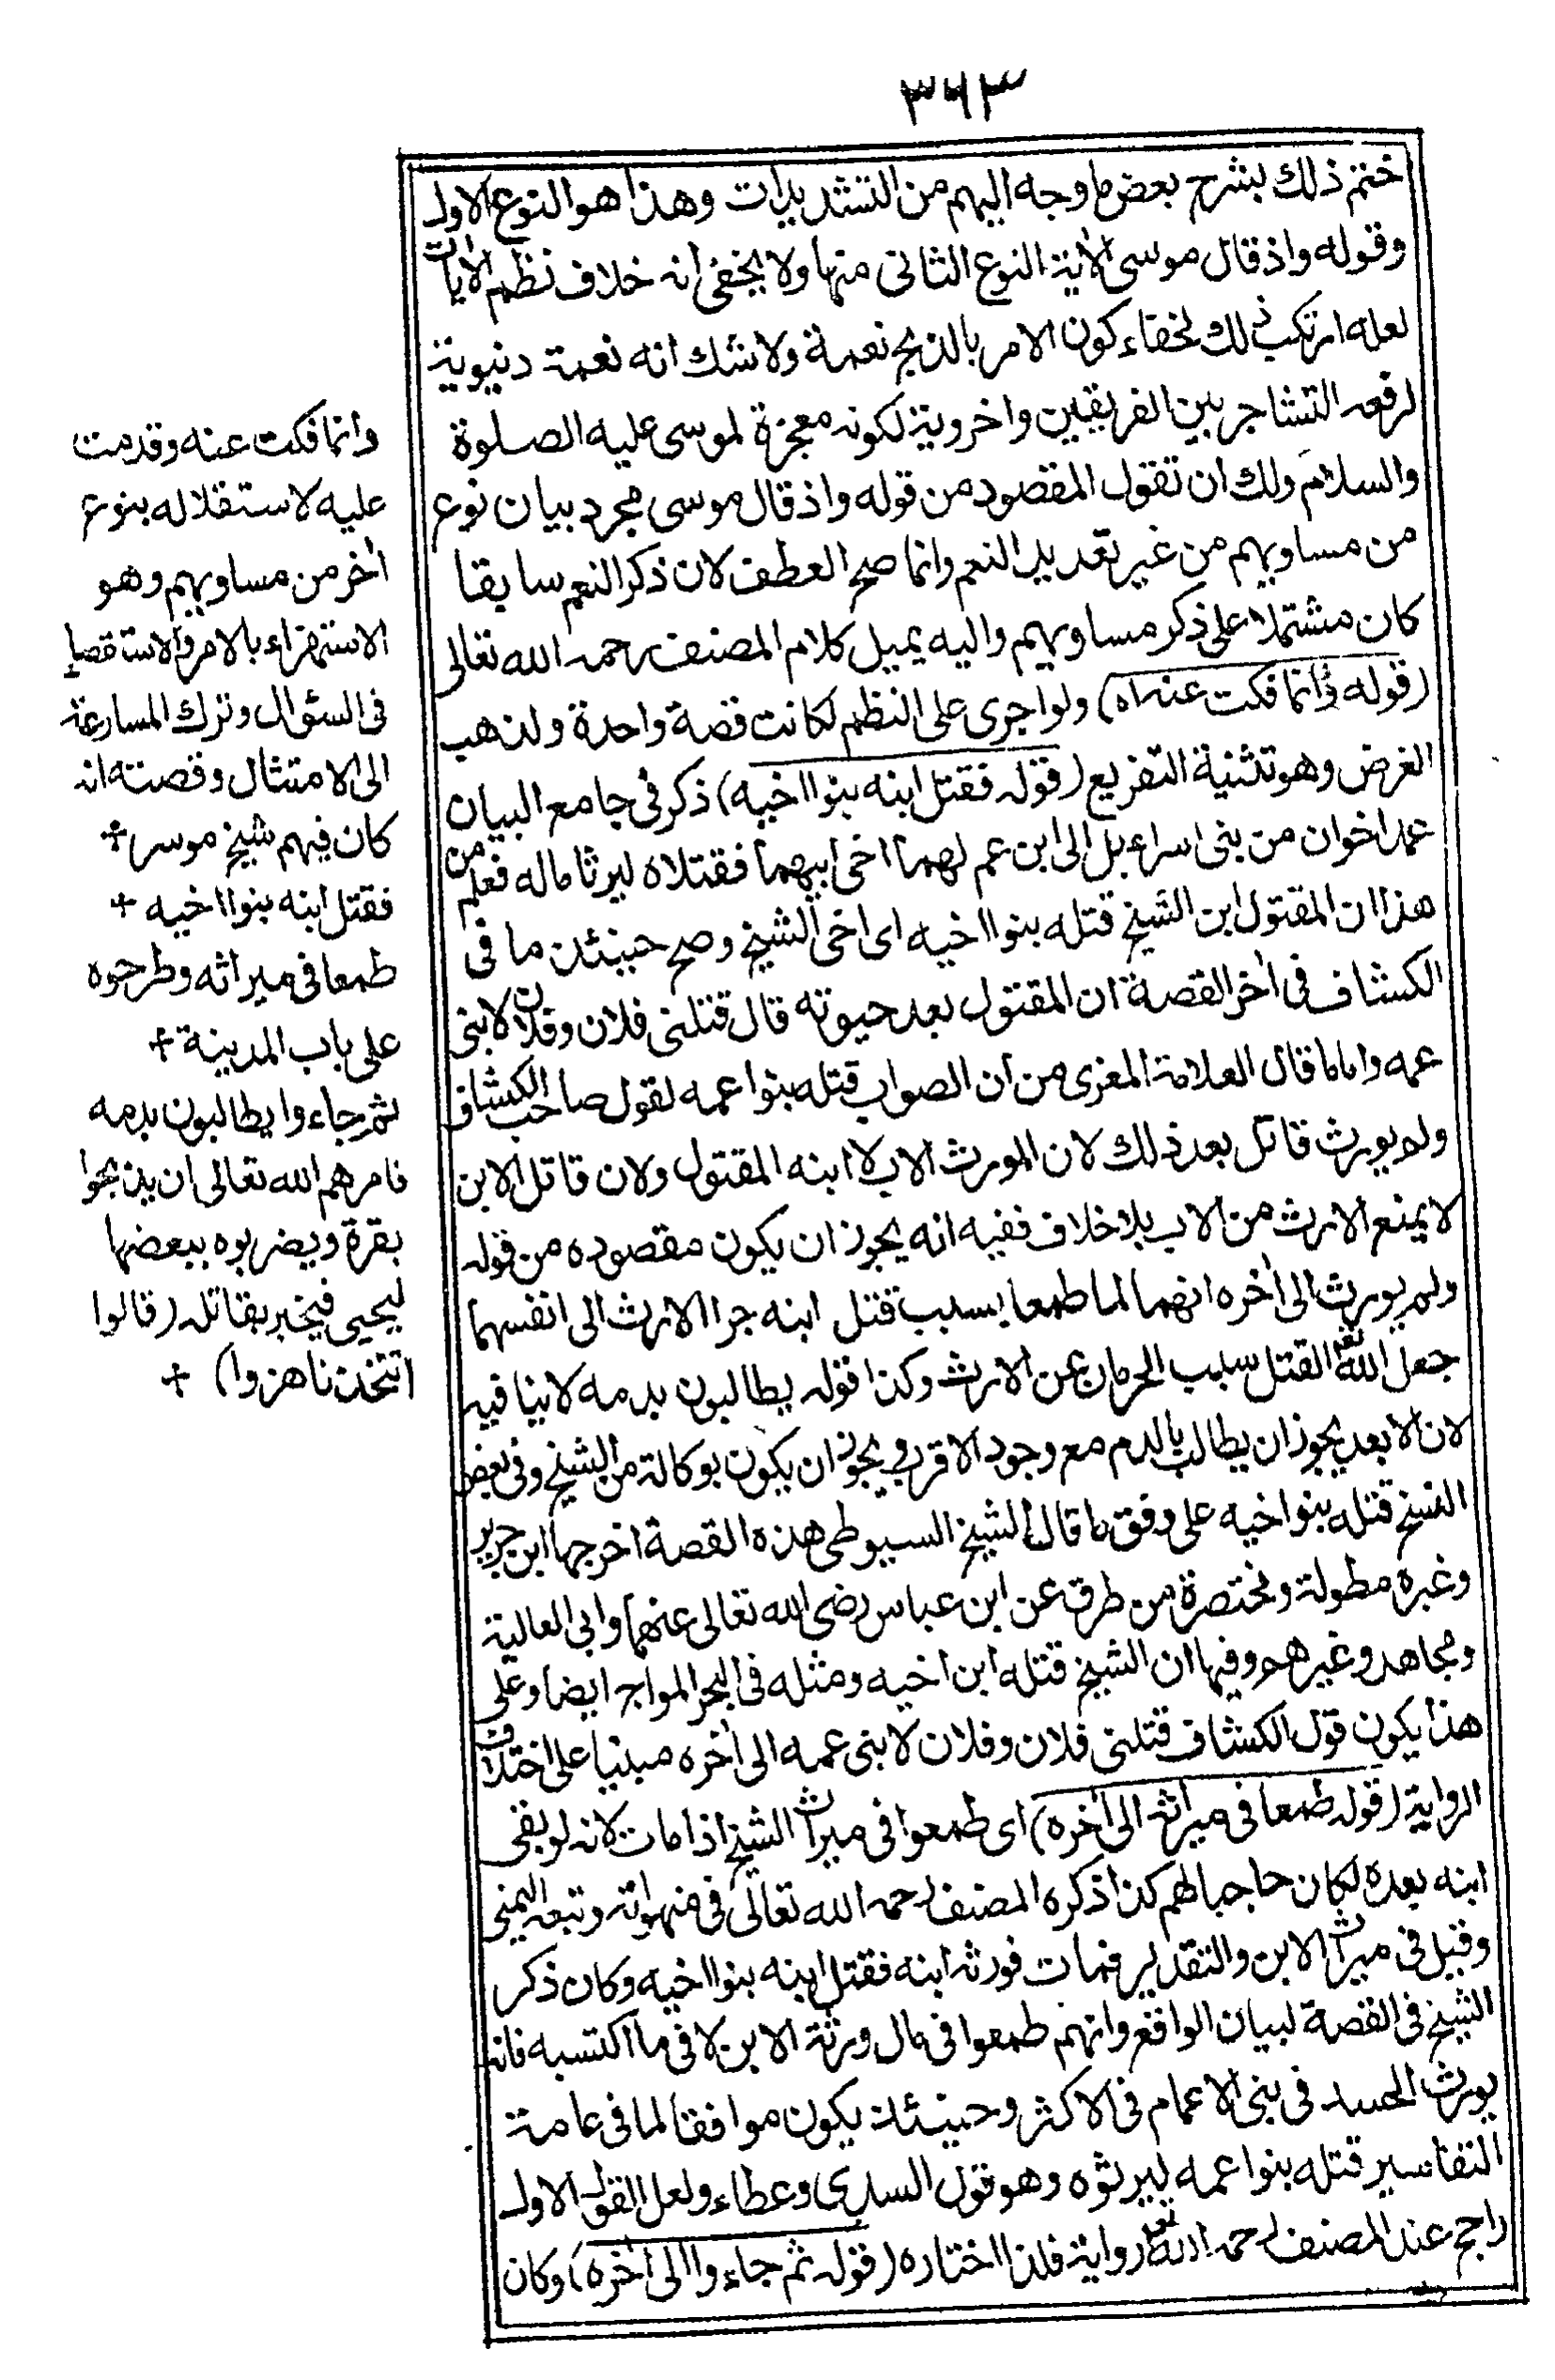 ٣٦٣
ختم ذلك بشرح بعض ما وجه اليهم من التشديدات وهذا هو النوع الاول
وقوله واذ قال موسى الآية النوع الثانى منها ولا يخفى انه خلاف نظم الآيات
لعله ارتكب ذلك لخفاء كون الامر بالذبح نعمة ولا شك انه نعمة دنيوية
لرفعه التشاجر بين الفريقين واخروية لكونه معجزة لموسى عليه الصلوة
والسلام ولك ان تقول المقصود من قوله واذ قال موسى مجرد بيان نوع
من مساويهم من غير تعديد النعم وانما صح العطف لان ذكر النعم سابقا
كان مشتملا على ذكر مساويهم واليه يميل كلام المصنف رحمه الله تعالى
(قوله وانما فكت عنه اه) ولو اجرى على النظم لكانت قصة واحدة ولذهب
الغرض وهو تثنية التقريع (قوله فقتل ابنه بنوا اخيه) ذكر فى جامع البيان
عمد اخوان من بنى اسراءيل الى ابن عم لهما اخى ابيهما فقتلاه ليرثا ماله فعلم من
هذا ان المقتول ابن الشيخ قتله بنوا اخيه اى اخى الشيخ وصح حينئذ ما فى
الكشاف فى آخر القصة ان المقتول بعد حيوته قال قتلنى فلان وفلان لابنى
عمه واما ما قال العلامة المغزى من ان الصواب قتله بنوا عمه لقول صاحب الكشاف
ولم يورث قاتل بعد ذلك لان المورث الاب لا ابنه المقتول ولان قاتل الابن
لا يمنع الارث من الاب بلا خلاف ففيه انه يجوز ان يكون مقصوده من قوله
ولم يورث الى آخره انهما لما طمعا بسبب قتل ابنه جرا الارث الى انفسهما
جعل الله تع القتل سبب الحرمان عن الارث وكذا قوله يطالبون بدمه لا ينافيه
لان الابعد يجوز ان يطالب بالدم مع وجود الاقرب ويجوز ان يكون بوكالة من الشيخ وفى بعض
النسخ قتله بنوا اخيه على وفق ما قال الشيخ السيوطى هذه القصة اخرجها ابن جرير
وغيره مطولة ومختصرة من طرق عن ابن عباس رضى الله تعالى عنهما وابى العالية
ومجاهد وغيرهم وفيها ان الشيخ قتله ابن اخيه ومثله فى البحر المواج ايضا وعلى
هذا يكون قول الكشاف قتلنى فلان وفلان لابنى عمه الى آخره مبنيا على اختلاف
الرواية (قوله طمعا فى ميراثه الى آخره) اى طمعوا فى ميراث الشيخ اذا مات لانه لو بقى
ابنه بعده لكان حاجبا لهم كذا ذكره المصنف رحمه الله تعالى فى منهواته وتبعه اليمنى
وقيل فى ميراث الابن والتقدير فمات فورثه ابنه فقتل ابنه بنوا اخيه وكان ذكر
الشيخ فى القصة لبيان الواقع وانهم طمعوا فى مال ورثة الابن لا فى ما اكتسبه فانه
يورث الحسد فى بنى الاعمام فى الاكثر وحينئذ يكون موافقا لما فى عامة
التفاسير قتله بنوا عمه ليرثوه وهو قول السدى وعطاء ولعل القول الاول
راجح عند المصنف رحمه الله تعالى رواية فلذا اختاره (قوله ثم جاءوا الى آخره) وكان
وانما فكت عنه وقدمت
عليه لاستقلاله بنوع
آخر من مساويهم وهو
الاستهزاء بالامر والاستقصاء
فى السؤال وترك المسارعة
الى الامتثال وقصته انه
كان فيهم شيخ موسر +
فقتل ابنه بنوا اخيه +
طمعا فى ميراثه وطرحوه
على باب المدينة +
ثم جاءوا يطالبون بدمه
فامرهم الله تعالى ان يذبحوا
بقرة ويضربوه ببعضها
ليحيى فيخبر بقاتله (قالوا
اتتخذنا هزوا) +